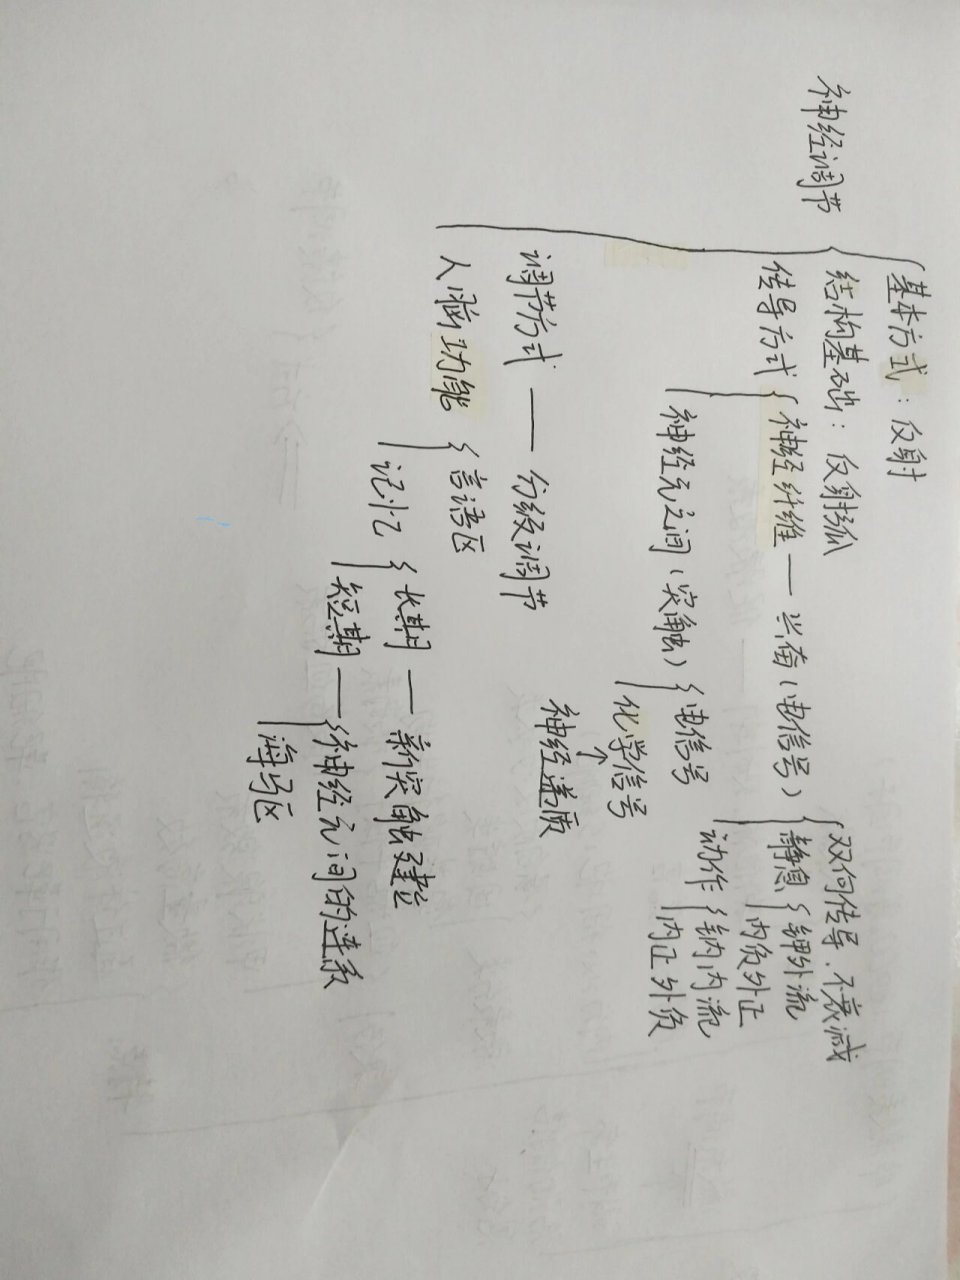 神经调节
基本方式：反射
结构基础：反射弧
传导方式
神经纤维 — 兴奋（电信号）
双向传导．不衰减
静息
钾外流
内负外正
动作
钠内流
内正外负
神经元之间（突触）
电信号
化学信号
↑
神经递质
调节方式 — 分级调节
人脑功能
言语区
记忆
长期 — 新突触建立
短期 —
神经元间的连系
海马区